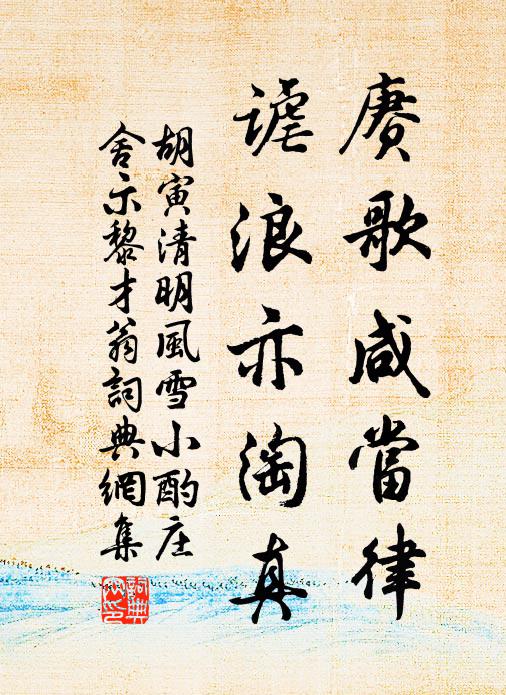 賡歌咸當律
謔浪亦淘真
胡寅清明風雪小酌庄
舍示黎才翁詞典網集